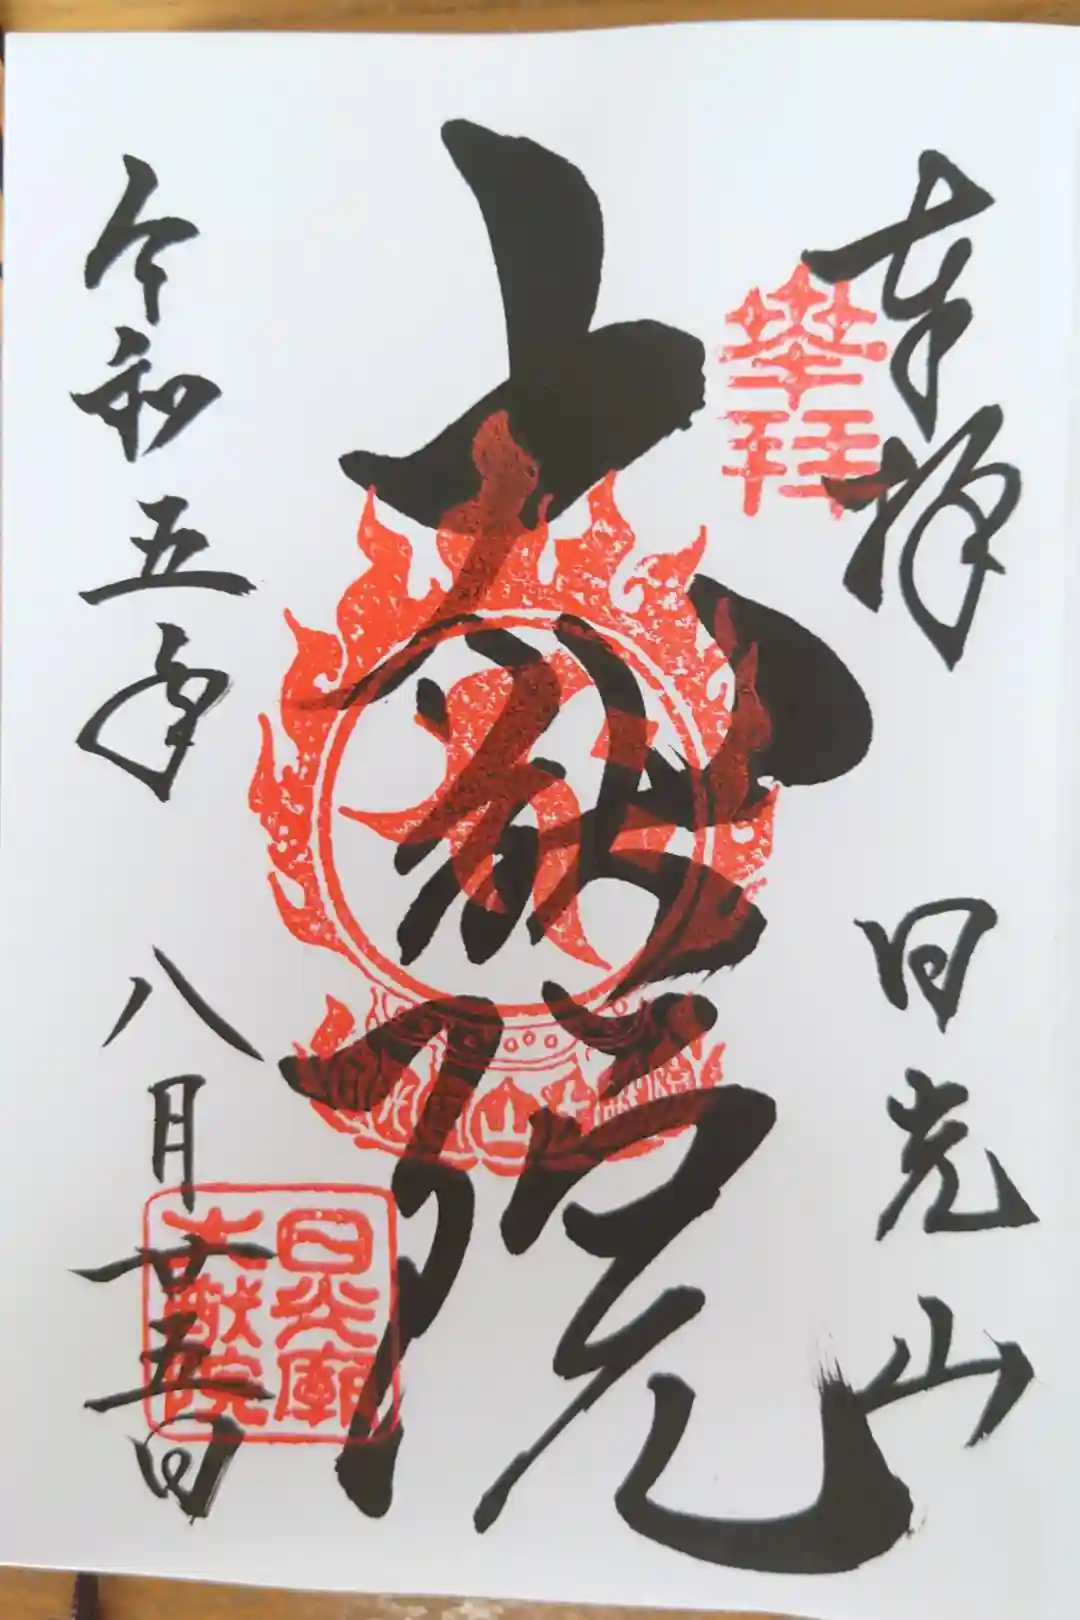 奉拝
日光山
奉拝
大猷院
日光廟
大猷院
令和五年
八月廿五日